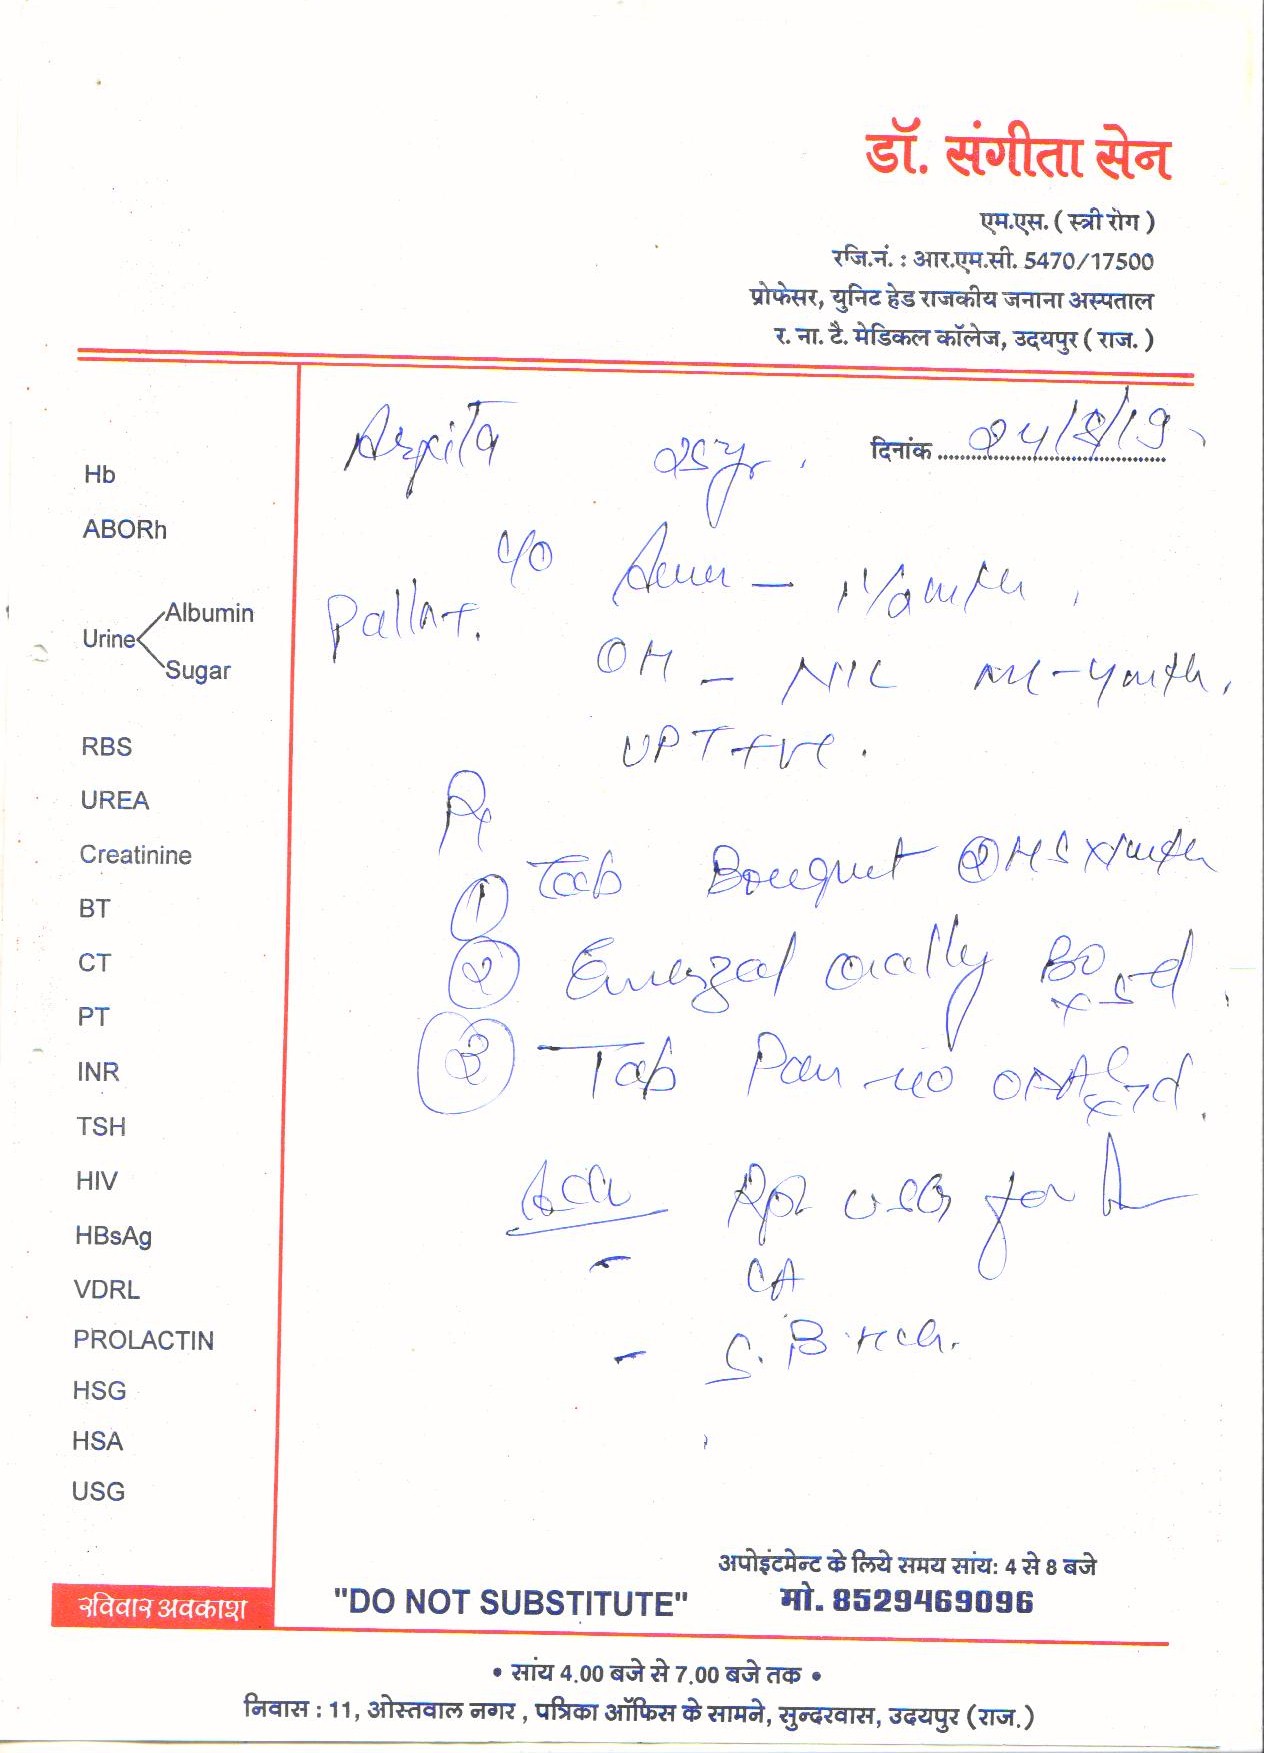 डॉ. संगीता सेन
एम.एस. ( स्त्री रोग )
रजि.नं. : आर.एम.सी. 5470/17500
प्रोफेसर, युनिट हेड राजकीय जनाना अस्पताल
र. ना. टै. मेडिकल कॉलेज, उदयपुर ( राज. )
Arpita दिनांक 24/8/19
Hb
ABORh
C/O Amen -
Urine Albumin
Sugar
OH - NIL
UPT +ve.
RBS
UREA
Creatinine
BT
CT
PT
INR
TSH
HIV
HBsAg
VDRL
PROLACTIN
HSG
HSA
USG
Rx
1 Tab HS x 1 month
2 orally BD x 5d
3 Tab Pan 40
Adv USG for
रविवार अवकाश
"DO NOT SUBSTITUTE"
अपोइंटमेन्ट के लिये समय सांय: 4 से 8 बजे
मो. 8529469096
• सांय 4.00 बजे से 7.00 बजे तक •
निवास : 11, ओस्तवाल नगर , पत्रिका ऑफिस के सामने, सुन्दरवास, उदयपुर (राज.)